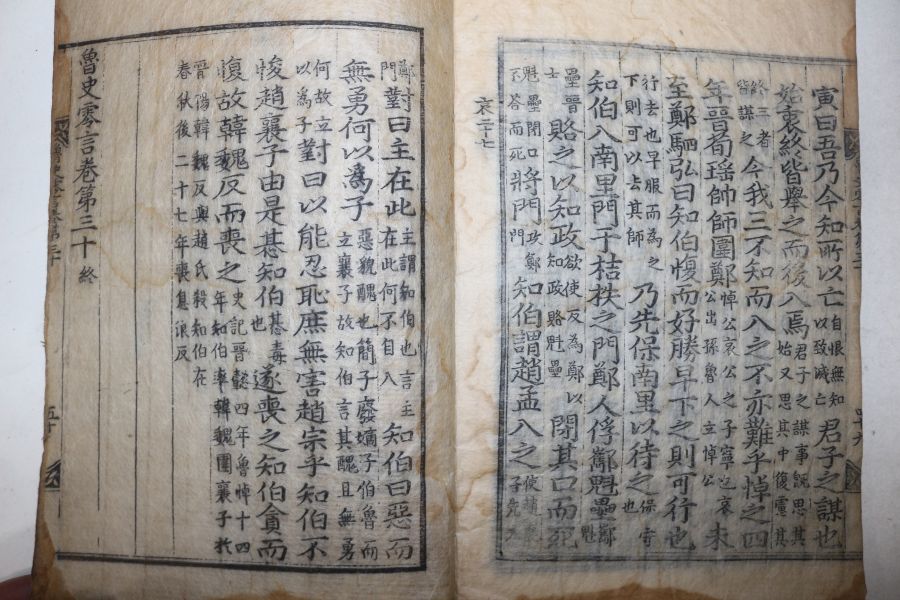 寅曰吾乃今知所以亡自恨無知以致滅亡君子之謀也
始衷終皆舉之而後入焉君子之謀事既思其始又思其中復慮其
終三者皆謀之今我三不知而入之不亦難乎悼之四
年晉荀瑤帥師圍鄭悼公哀公之子寧也哀公出孫魯人立悼公未
至鄭駟弘曰知伯愎而好勝早下之則可行也
行去也早服而為之下則可以去其師乃先保南里以待之保守也
知伯入南里門于桔柣之門鄭人俘酅魁壘酅魁
壘晉士賂之以知政欲使反為鄭以知政賂魁壘閉其口而死
魁壘閉口不答而死將門攻鄭門知伯謂趙孟入之使趙襄子先入
哀二十七
鄭門對曰主在此主謂知伯也言主在此何不自入知伯曰惡而
無勇何以為子惡貌醜也簡子廢嫡子伯魯而立襄子故知伯言其醜且無勇
何故立以為子對曰以能忍恥庶無害趙宗乎知伯不
悛趙襄子由是惎知伯惎毒也遂喪之知伯貪而
愎故韓魏反而喪之史記晉懿四年魯悼十四年知伯率韓魏圍襄子於
晉陽韓魏反與趙氏殺知伯在春秋後二十七年喪息浪反
魯史零言卷第三十終
五十